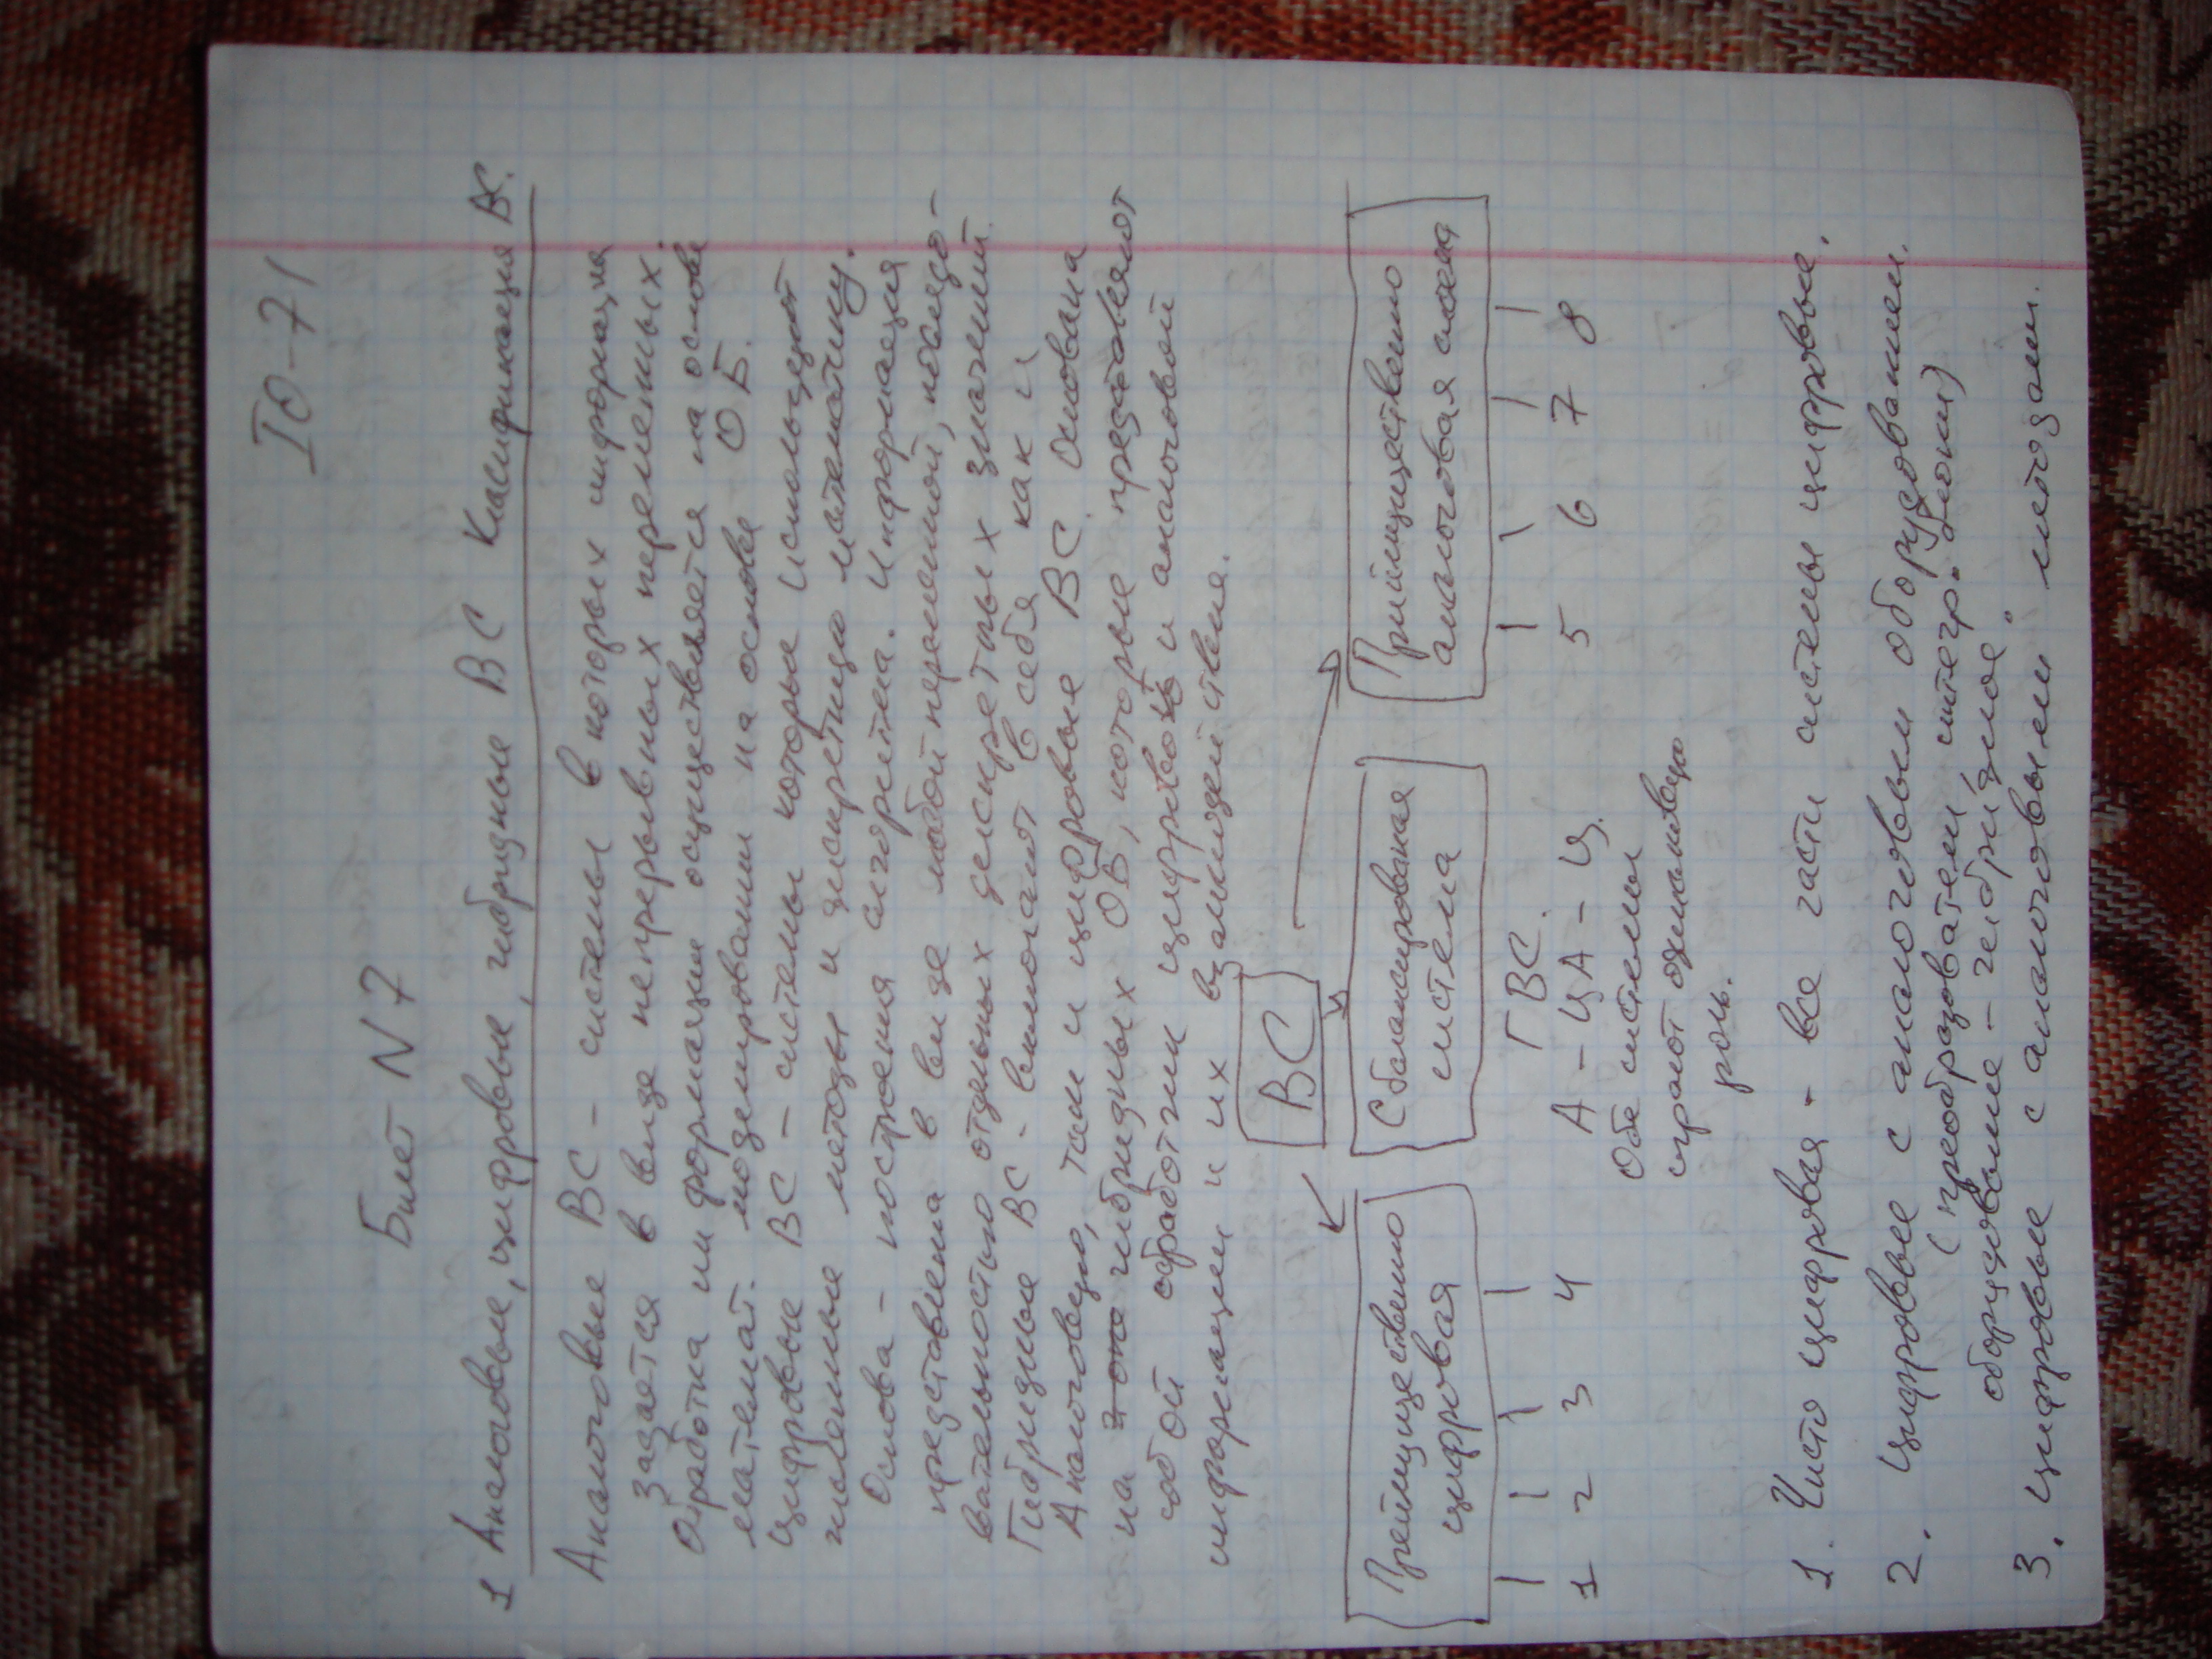 ІО-71
Билет N7
1 Аналоговые, цифровые, гибридные ВС Класификация ВС.
Аналоговые ВС - системы в которых информация
задаётся в виде непрерывных переменных
Обработка информации осуществляется на основе
математ. моделирования на основе ОБ.
Цифровые ВС - системы которые используют
численные методы и дискретную математику.
Основа - построения алгоритма. Информация
представлена в виде любой переменной, последо-
вательностью отдельных дискретных значений
Гибридные ВС - включают в себя как и
Аналоговую, так и цифровые ВС. Основана
на гибридных ОБ, которые представляют
собой обработки цифровой и аналоговой
информации и их взаимодействия.
ВС
Преимущественно цифровая
Сбалансированая система
Приймущественно аналоговая система
1 2 3 4
ГВС.
5 6 7 8
А - ЦА - Ц.
Обе системы
играют одинаковую
роль.
1. Чисто цифровая - все части системы цифровые.
2. Цифровые с аналоговым оборудованием.
(преобразователи, интегр. блоки)
оборудование - гибридное
3. Цифровые с аналоговыми " методами.